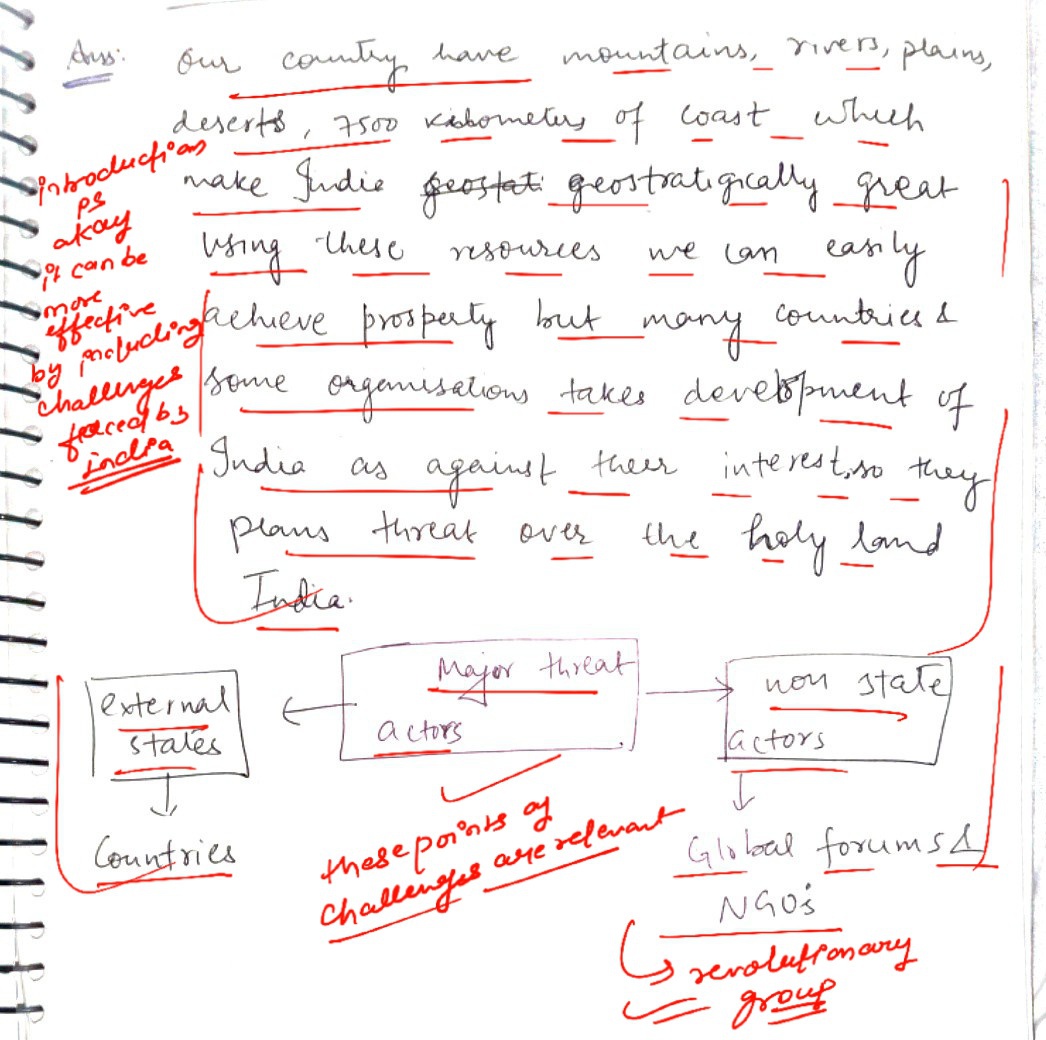 Ans: Our country have mountains, rivers, plains,
deserts, 7500 kilometers of coast which
make India geostati geostratigically great
using these resources we can easily
achieve prosperty but many countries &
some organisations takes development of
India as against their interest, so they
plans threat over the holy land
India.
introduction
is
okay
it can be
more
effective
by including
challenges
faced by
india
Major threat
actors
external
states
Countries
non state
actors
Global forums &
NGO's
these points of
challenges are relevant
revolutionary
group